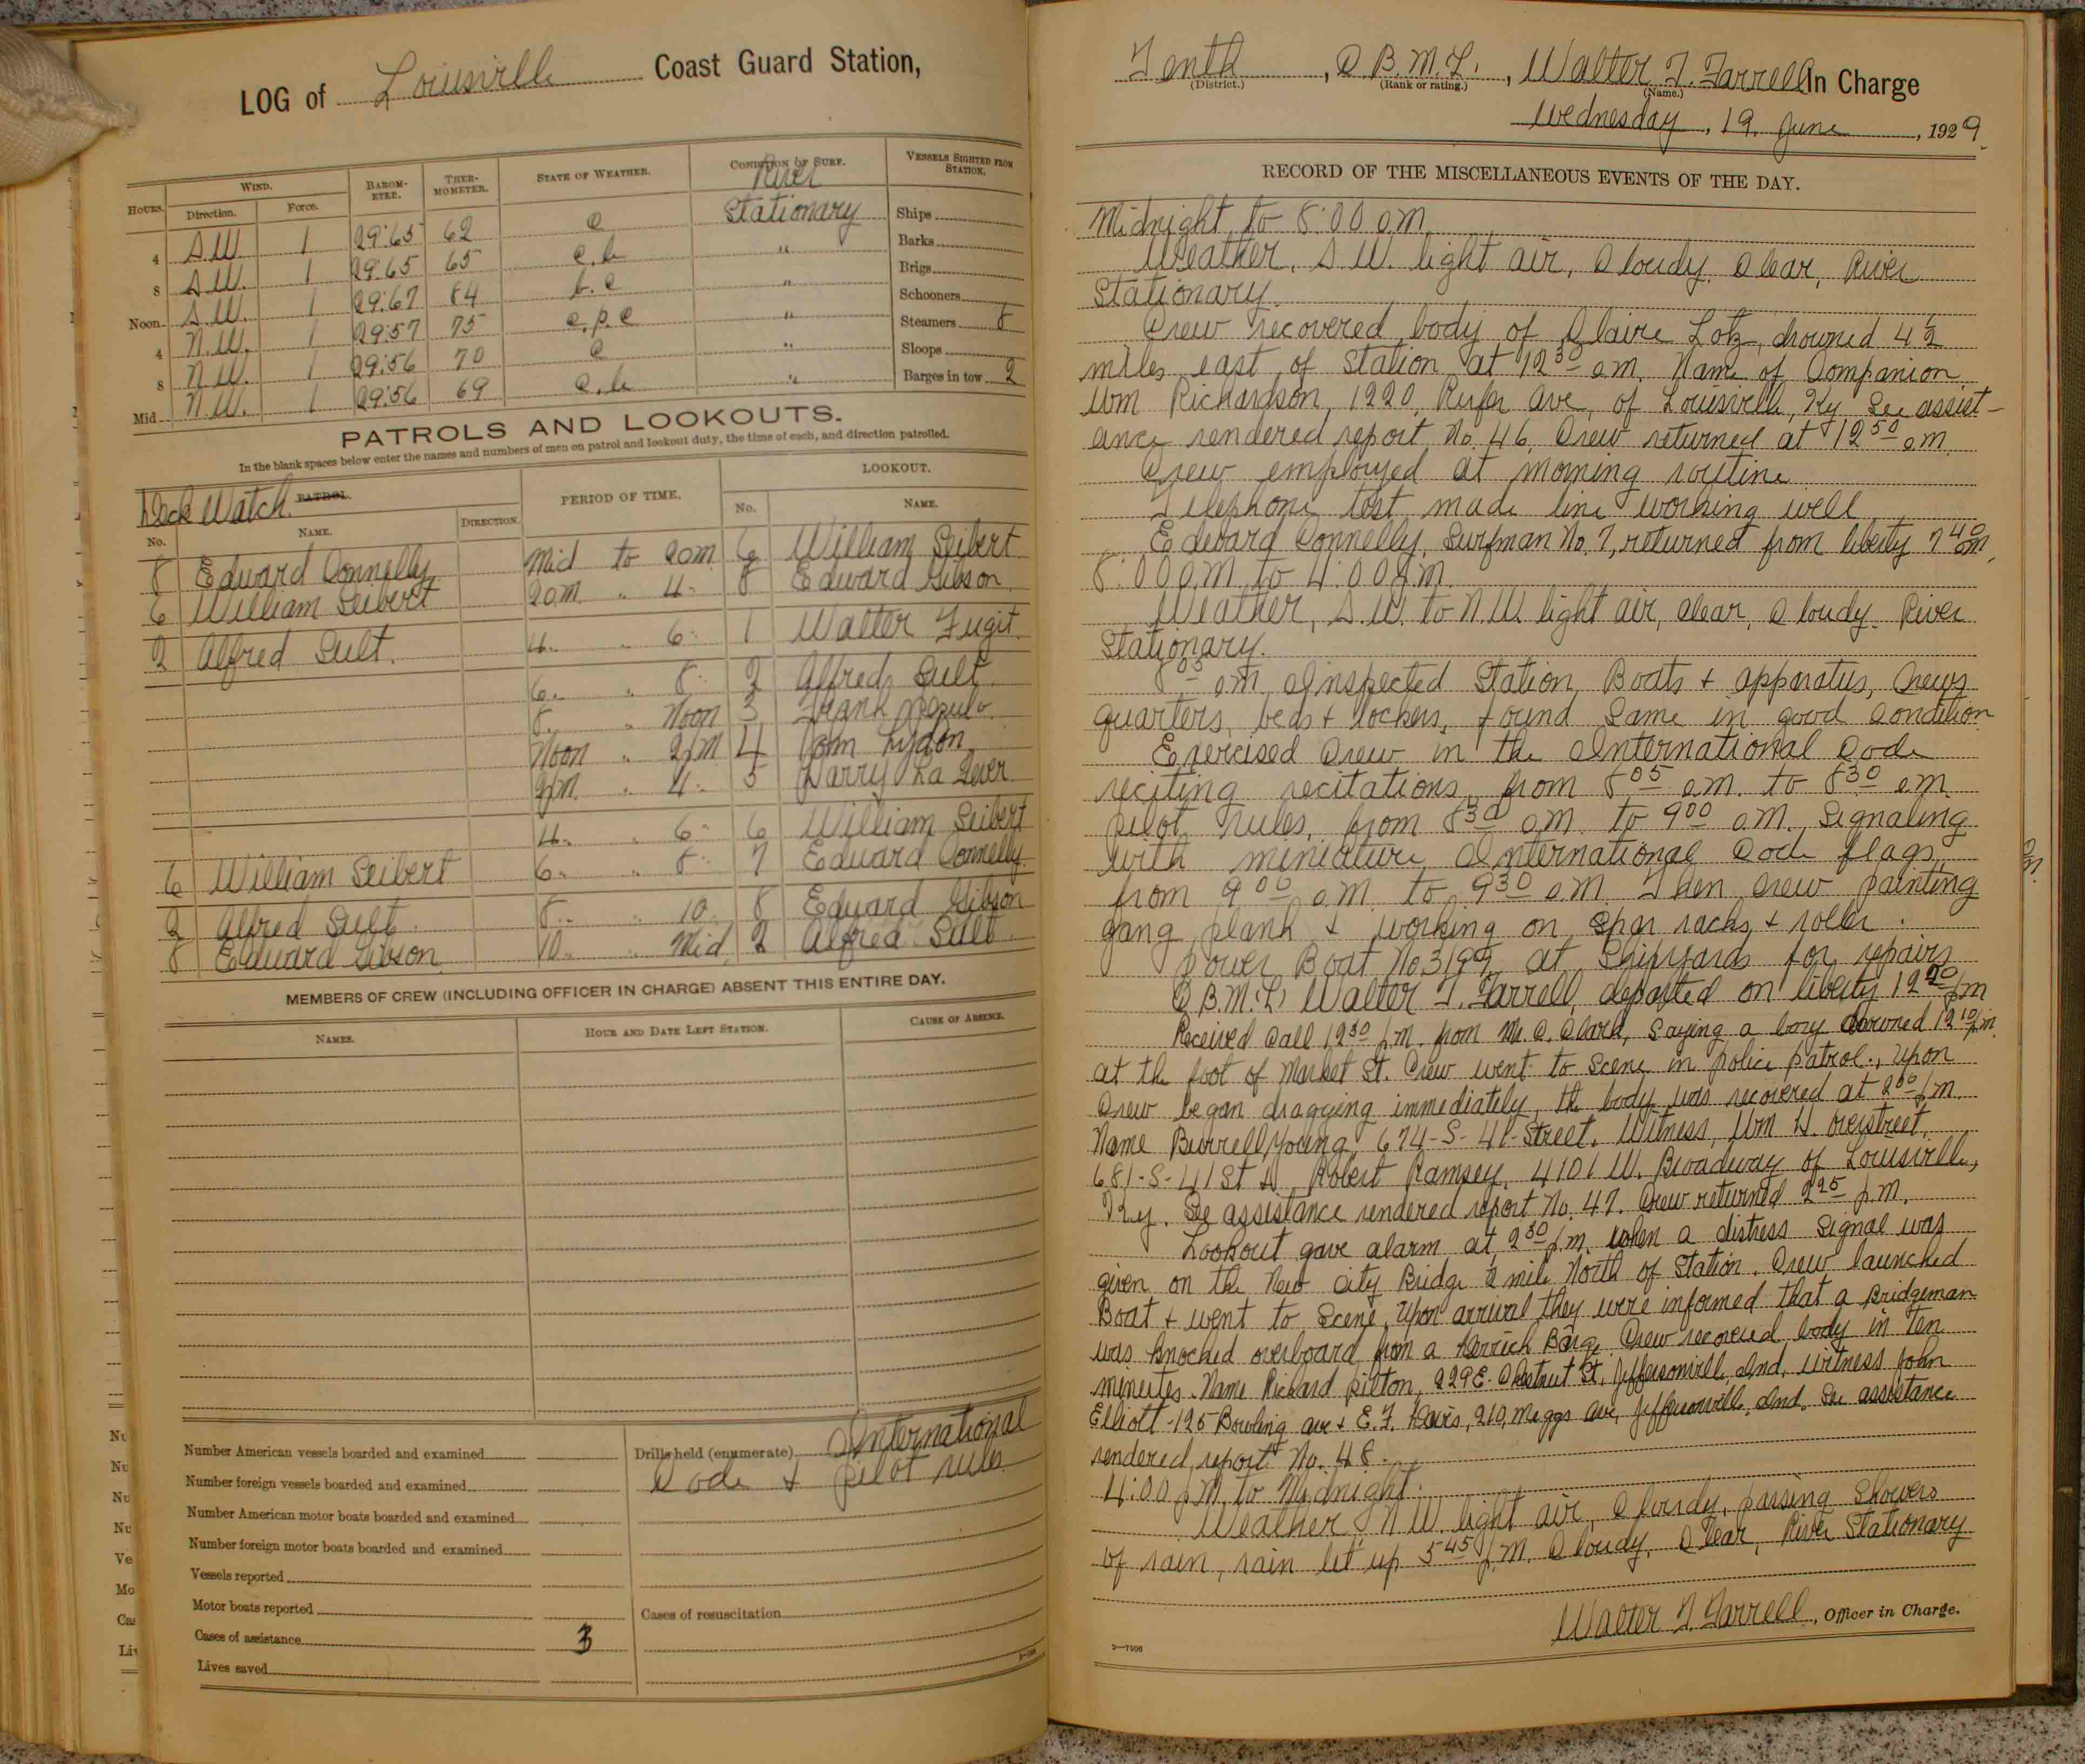 LOG of Louisville Coast Guard Station,
HOURS. WIND. BAROMETER. THERMOMETER. STATE OF WEATHER. CONDITION OF SURF. VESSELS SIGHTED FROM STATION.
Direction. Force. River
4 S.W. 1 29.65 62 c Stationary Ships
8 S.W. 1 29.65 65 c.b " Barks
Noon S.W. 1 29.67 84 b.c " Brigs
4 N.W. 1 29.57 75 c,p.c " Schooners
8 N.W. 1 29.56 70 c " Steamers 8
Mid N.W. 1 29.56 69 c.b " Sloops
Barges in tow 2
PATROLS AND LOOKOUTS.
In the blank spaces below enter the names and numbers of men on patrol and lookout duty, the time of each, and direction patrolled.
Dock Watch. PATROL. PERIOD OF TIME. LOOKOUT.
No. NAME. DIRECTION. No. NAME.
8 Edward Connelly Mid to 2am 6 William Seibert
6 William Seibert 2am " 4 8 Edward Gibson
2 Alfred Sult. 4 " 6 1 Walter Fugit
6 " 8 2 Alfred Sult
8 " Noon 3 Frank
Noon " 2pm 4 Lydon
2pm " 4 5 Harry
4 " 6 6 William Seibert
6 William Seibert 6 " 8 7 Edward Connelly
2 Alfred Sult 8 " 10 8 Edward Gibson
8 Edward Gibson 10 " Mid 2 Alfred Sult
MEMBERS OF CREW (INCLUDING OFFICER IN CHARGE) ABSENT THIS ENTIRE DAY.
NAMES. HOUR AND DATE LEFT STATION. CAUSE OF ABSENCE.
Number American vessels boarded and examined
Number foreign vessels boarded and examined
Number American motor boats boarded and examined
Number foreign motor boats boarded and examined
Vessels reported
Motor boats reported
Cases of assistance 3
Lives saved
Drills held (enumerate) International
Code & pilot rules
Cases of resuscitation
Tenth, C B.M.L., Walter F. Farrell In Charge
(District.) (Rank or rating.) (Name.)
Wednesday, 19, June, 1929.
RECORD OF THE MISCELLANEOUS EVENTS OF THE DAY.
Midnight to 8:00 am
Weather, S.W. light air, Cloudy, Clear, River
Stationary.
Crew recovered body of Claire Lotz, drowned 4 1/2
miles east of Station at 12 30 am. Name of Companion
Wm Richardson, 1220, Rufer Ave, of Louisville, Ky. See assist-
ance rendered report No. 46. Crew returned at 12 50 am.
Crew employed at morning routine
Telephone test made line working well
Edward Connelly, Surfman No. 7, returned from liberty 7 40 am.
8:00 am to 4:00 pm.
Weather, S.W. to N.W. light air, clear, Cloudy. River
Stationary.
8 05 am, Inspected Station, Boats & apparatus, Crews
quarters, beds & lockers, found same in good condition
Exercised Crew in the International Code
reciting recitations, from 8 05 am. to 8 30 am.
pilot rules, from 8 30 am. to 9 00 am. Signaling
with miniature International Code flags,
from 9 00 am. to 9 30 am. Then crew painting
gang plank & working on spar racks & roller.
Power Boat No. 3199 at Shipyards for repairs
C B.M.(L) Walter F. Farrell, departed on liberty 12 20 pm
Received Call 12 30 p.m. from Mr. C. Clark, saying a boy drowned 12 10 pm.
at the foot of Market St. Crew went to scene in police patrol., Upon
Crew began dragging immediately, the body was recovered at 2 00 pm
Name Burrell Young, 674-S-41-Street. Witness, Wm H. Overstreet,
681-S-41 St Robert Ramsey, 4101 W. Broadway of Louisville,
Ky. See assistance rendered report No. 47. Crew returned 2 25 p.m.
Lookout gave alarm at 2 30 p.m. when a distress signal was
given on the New City Bridge 1/2 mile North of Station. Crew launched
Boat & went to scene, Upon arrival they were informed that a Bridgeman
was knocked overboard from a Derrick Barge. Crew recovered body in Ten
minutes. Name Richard Pilton, 229 E. Chestnut St, Jeffersonvill, Ind, witness John
Elliott-125 Bowling ave & E.F. Davis, 210, Meggs ave, Jeffersonville, Ind. See assistance
rendered report No. 48.
4:00 p.m. to Midnight.
Weather, N.W. light air, Cloudy, passing showers
of rain, rain let up 5 45 p.m. Cloudy, Clear, River Stationary
Walter F. Farrell, Officer in Charge.
2—7906